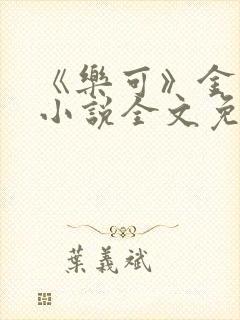 《樂可》金
小說全文免
葉義斌